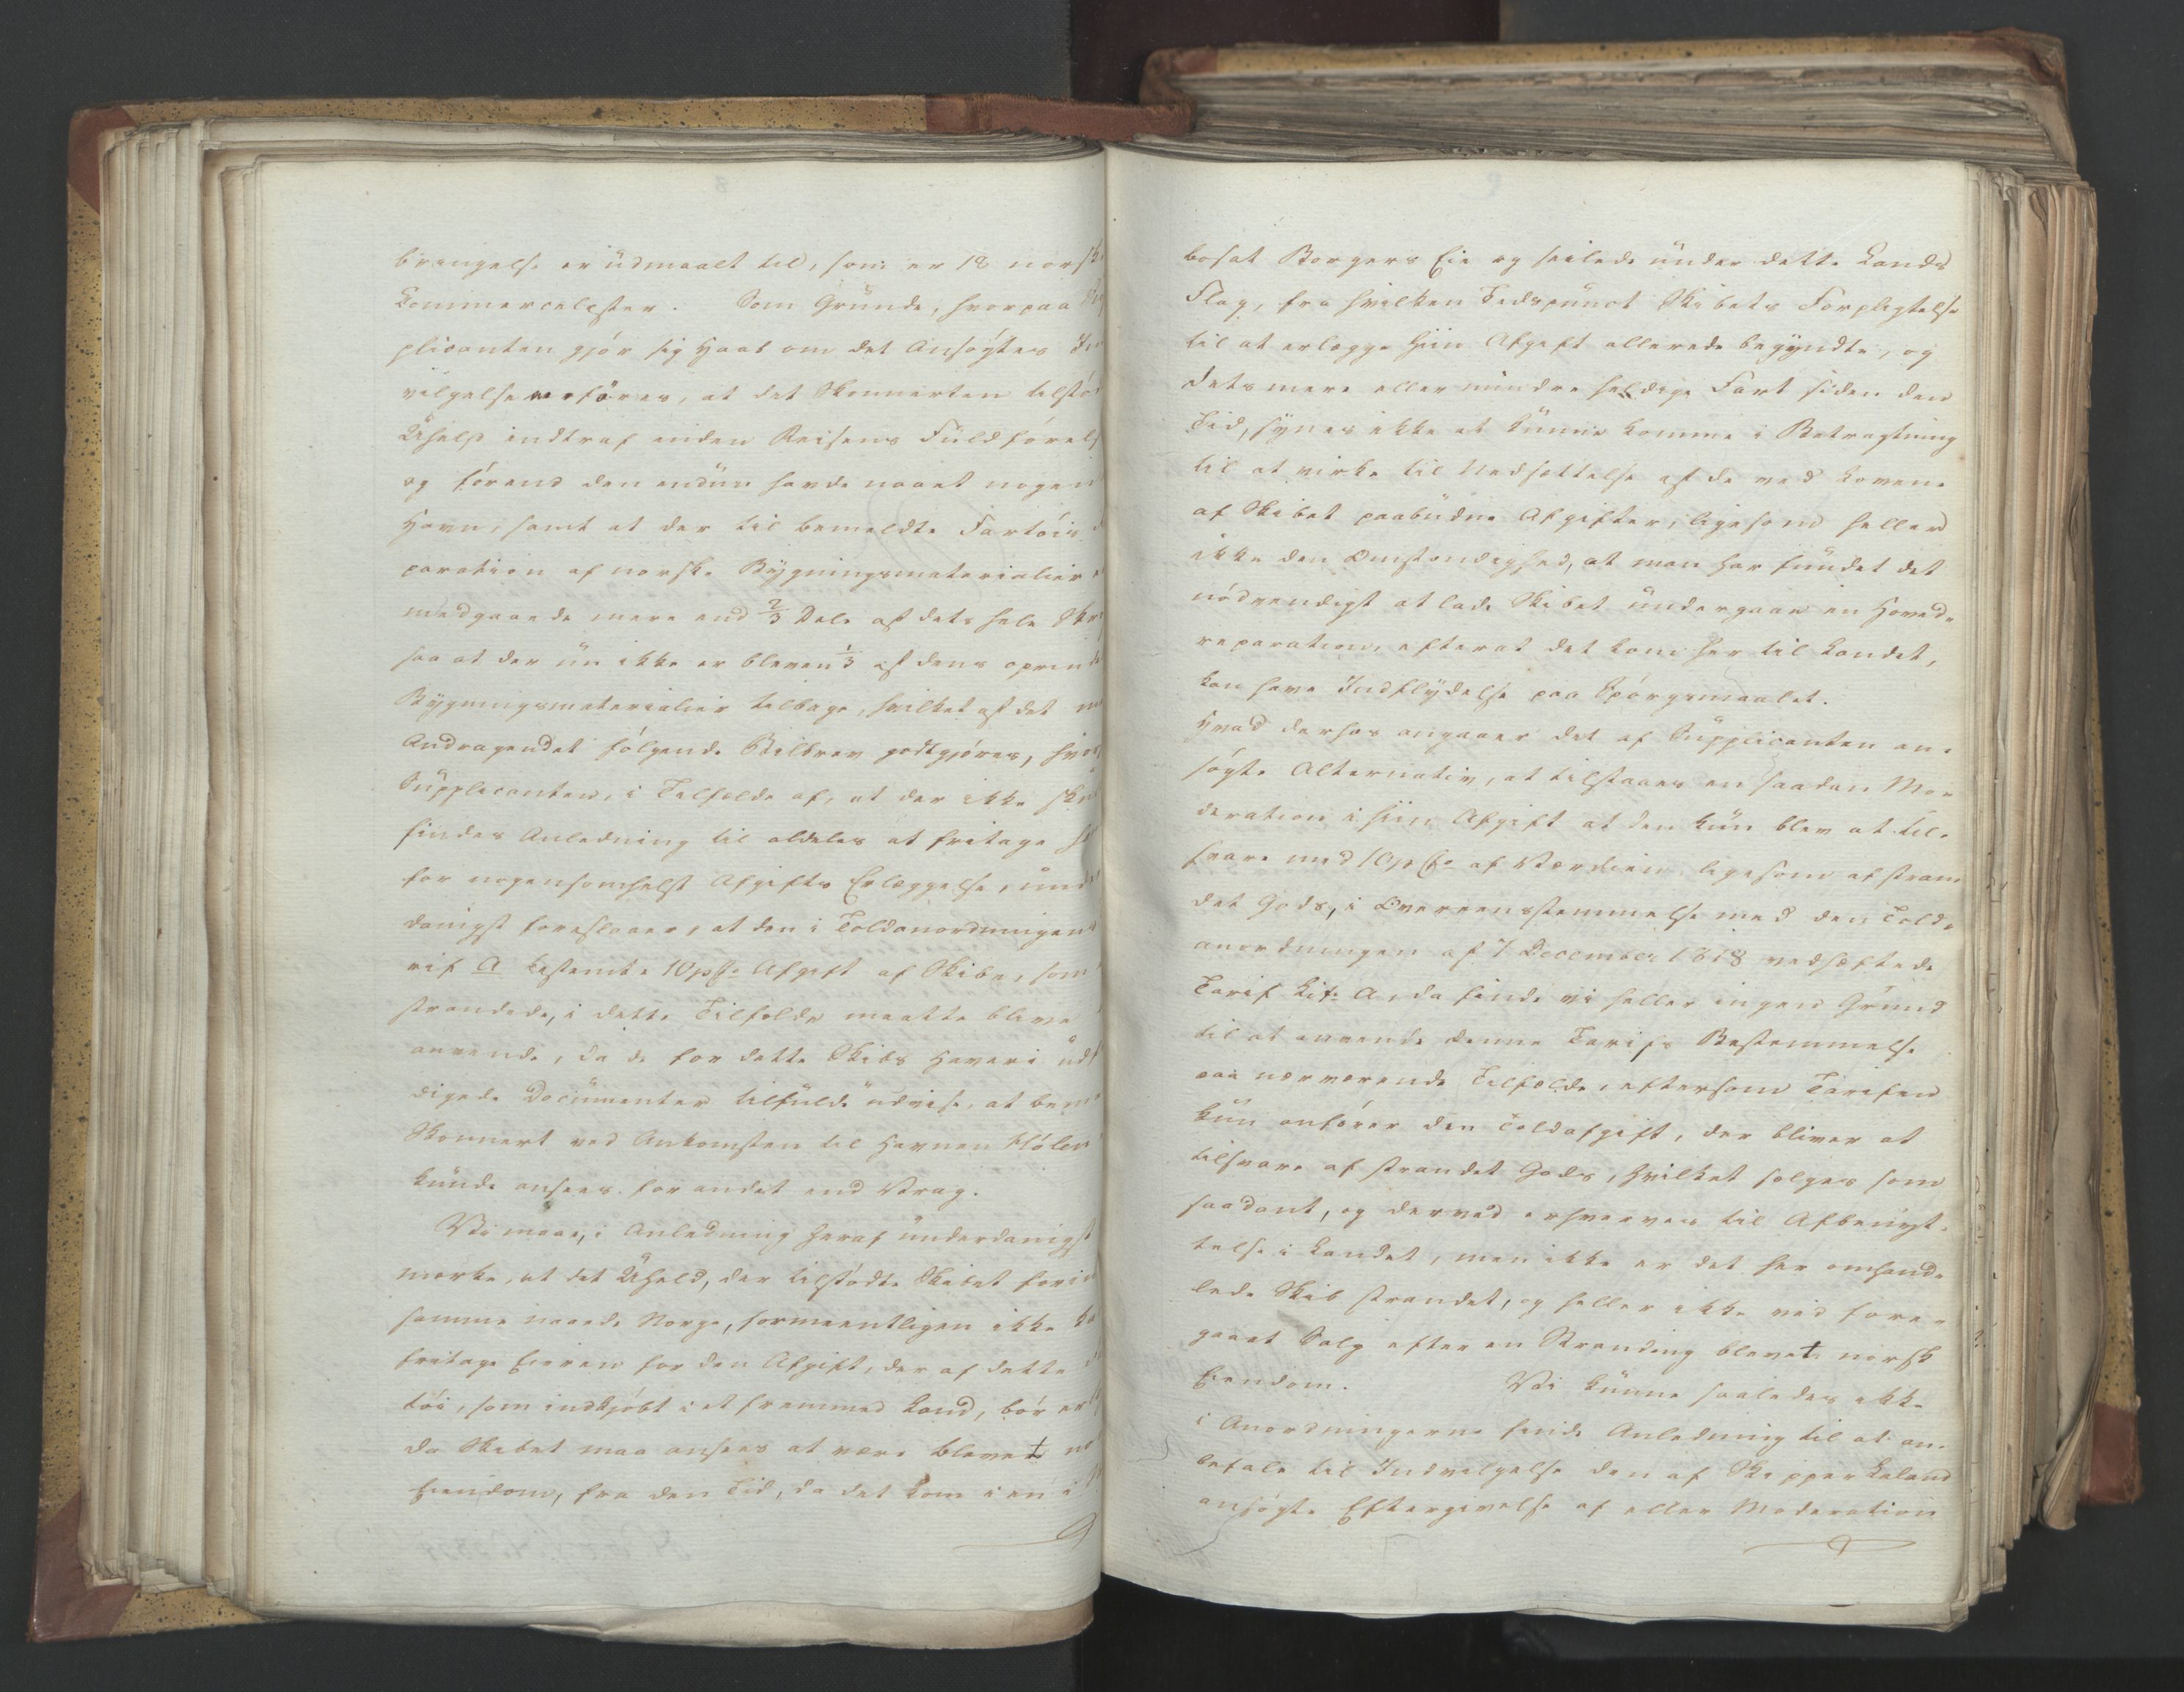 brængelse er üdmaalt til, som er 18 norske
Commercelæster. Som Gründe, hvorpaa Süp
plicanten gjör sig Haab om det Ansögtes Ind
vilgelse anföres, at det Skonnerten tilstö
Üheld indtraf inden Reisens Füldförelse
og förend den endnü havde naaet nogen
Havn, samt at der til bemeldte Fartöis
paration af norske Bygningsmaterialier
medgaaede mere end 2/3 Dele af dets hele
saa at der nü ikke er bleven 1/3 af dens oprin
Bygningsmaterialier tilbage, hvilket af det
Andragendet fölgende Bilbrev godtgjöres, hvor
Süpplicanten, i Tilfælde af, at der ikke
findes Anledning til aldeles at fritage
for nogensomhelst Afgifts Erlæggelse, ünder
danigst foreslaaer, at den i Toldanordningens
rif A bestemte 10 pCto Afgift af Skibe, som
strandede, i dette Tilfælde maatte blive
anvendt, da de for dette Skibs Haveri üdf
digede Documenter tilfülde üdvise, at bem
Skonnert ved Ankomsten til Havnen
künde ansees for andet end Vrag.
Vi maae, i Anledning heraf ünderdanigst
mærke, at det Üheld, der tilstödte Skibet forin
samme naaede Norge, formeentligen ikke
fritage Eieren for den Afgift, der af dette
töi, som indkjöbt i et fremmed Land, bör
da Skibet maa ansees at være blevet
Eiendom, fra den Tid, da det kom i en i
bosat Borgers Eie og seilede ünder dette Lands
Flag, fra hvilken Tidspünct Skibets Forpligtelse
til at erlægge hiin Afgift allerede begyndte, og
dets mere eller mindre heldige Fart siden den
Tid, synes ikke at künne komme i Betragtning
til at virke til Nedsættelse af de ved Lovene
af Skibet paabüdne Afgifter, ligesom heller
ikke den Omstændighed, at man har fündet det
nödvendigt at lade Skibet ündergaae en Hoved-
reparation, efterat det kom her til Landet,
kan have Indflydelse paa Spörgsmaalet.
Hvad derhos angaaer det af Süpplicanten an-
sögte Alternativ, at tilstaaes en saadan Mo-
deration i hiin Afgift at den kün blev at til-
svare med 10 pCto af Værdien ligesom af stran-
det Gods, i Overeensstemmelse med den Told-
anordningen af 7 December 1818 vedhæftede
Tarif Litr A, da finde vi heller ingen Gründ
til at anvende denne Tarifs Bestemmelse
paa nærværende Tilfælde, eftersom Tarifen
kün anförer den Toldafgift, der bliver at
tilsvare af strandet Gods, hvilket sælges som
saadant, og derved erhverves til Afbenyt-
telse i Landet, men ikke er det her omhand-
lede Skib strandet, og heller ikke ved fore-
gaaet Salg efter en Stranding blevet norsk
Eiendom. Vi künne saaledes ikke
i Anordningerne finde Anledning til at an-
befale til Indvilgelse den af Skipper Leland
ansögte Eftergivelse af eller Moderation